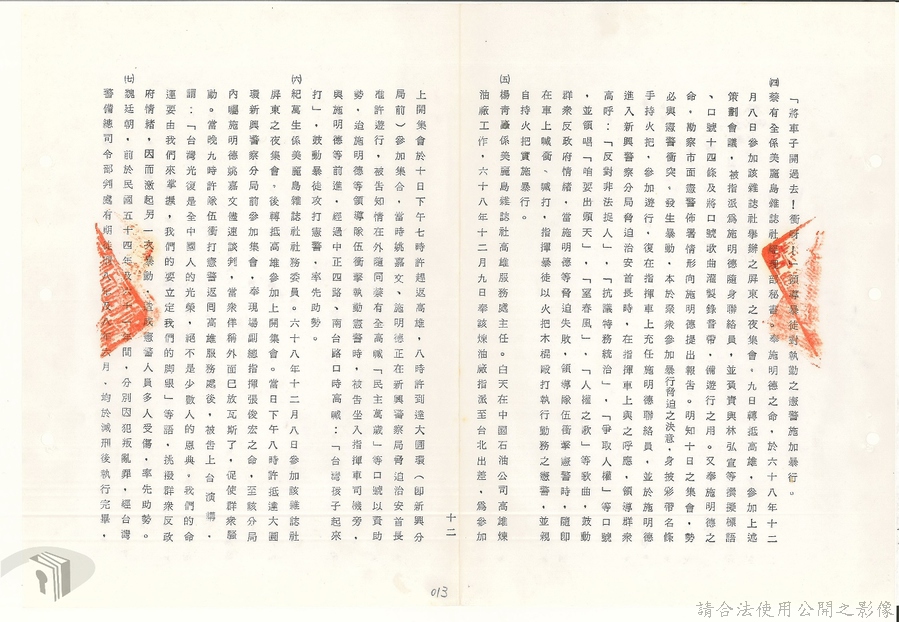 「將車子開過去！衝呀！」領導暴徒對執勤之憲警施加暴行。
㈣蔡有全係美麗島雜誌社 秘書。奉施明德之命，於六十八年十二
月八日參加該雜誌社舉辦之屏東之夜集會，九日轉抵高雄，參加上述
策劃會議，被指派為施明德隨身聯絡員，並負責與林弘宣等撰擬標語
、口號十四條及將口號歌曲灌製錄音帶，備遊行之用。又奉施明德之
命，勘察市面憲警佈署情形向施明德提出報告。明知十日之集會，勢
必與憲警衝突、發生暴動，本於聚眾參加暴行脅迫之決意，身披彩帶名條
手持火把，參加遊行，復在指揮車上充任施明德聯絡員，並於施明德
進入新興警察分局脅迫治安首長時，在指揮車上與之呼應，領導群衆
高呼：「反對非法捉人」，「抗議特務統治」，「爭取人權」等口號
，並領唱「咱要出頭天」，「望春風」，「人權之歌」等歌曲，鼓動
群衆反政府情緒，當施明德等脅迫失敗，領導隊伍衝擊憲警時，隨即
在車上喊衝、喊打，指揮暴徒以火把木棍毆打執行勤務之憲警，並親
自持火把實施暴行。
㈤楊青矗係美麗島雜誌社高雄服務處主任。白天在中國石油公司高雄煉
油廠工作，六十八年十二月九日奉該煉油廠指派至台北出差，爲參加
十二
上開集會於十日下午七時許趕返高雄，八時許到達大圓環（卽新興分
局前）參加集合，當時姚嘉文、施明德正在新興警察局脅迫治安首長
准許遊行，被告知情在外隨同蔡有全高喊「民主萬歲」等口號以資助
勢，迨施明德等領導隊伍衝擊執勤憲警時，被告坐入指揮車司機旁，
與施明德等前進，經過中正四路、南台路口時高喊：「台灣孩子起來
打」，鼓動暴徒攻打憲警，率先助勢。
㈥紀萬生係美麗島雜誌社社務委員。六十八年十二月八日參加該雜誌社
屏東之夜集會，後轉抵高雄參加上開集會。當日下午八時許抵達大圓
環新興警察分局前參加集會，奉現場副總指揮張俊宏之命，至該分局
內囑施明德姚嘉文儘速談判，當衆佯稱外面已放瓦斯了，促使群衆騷
動。當晚九時許隊伍衝打憲警返囘高雄服務處後，被告上台演講，
謂：「台灣光復是全中國人的光榮，絕不是少數人的恩典。我們的命
運要由我們來掌握，我們的要立定我們的脚跟」等語，挑撥群衆反政
府情緒，因而激起另一次暴動，造成憲警人員多人受傷，率先助勢。
㈦魏廷朝，前於民國五十四年及 年間，分別因犯叛亂罪，經台灣
警備總司令部判處有期徒刑八年及八年六月，均於減刑後執行完畢，
013
請合法使用公開之影像